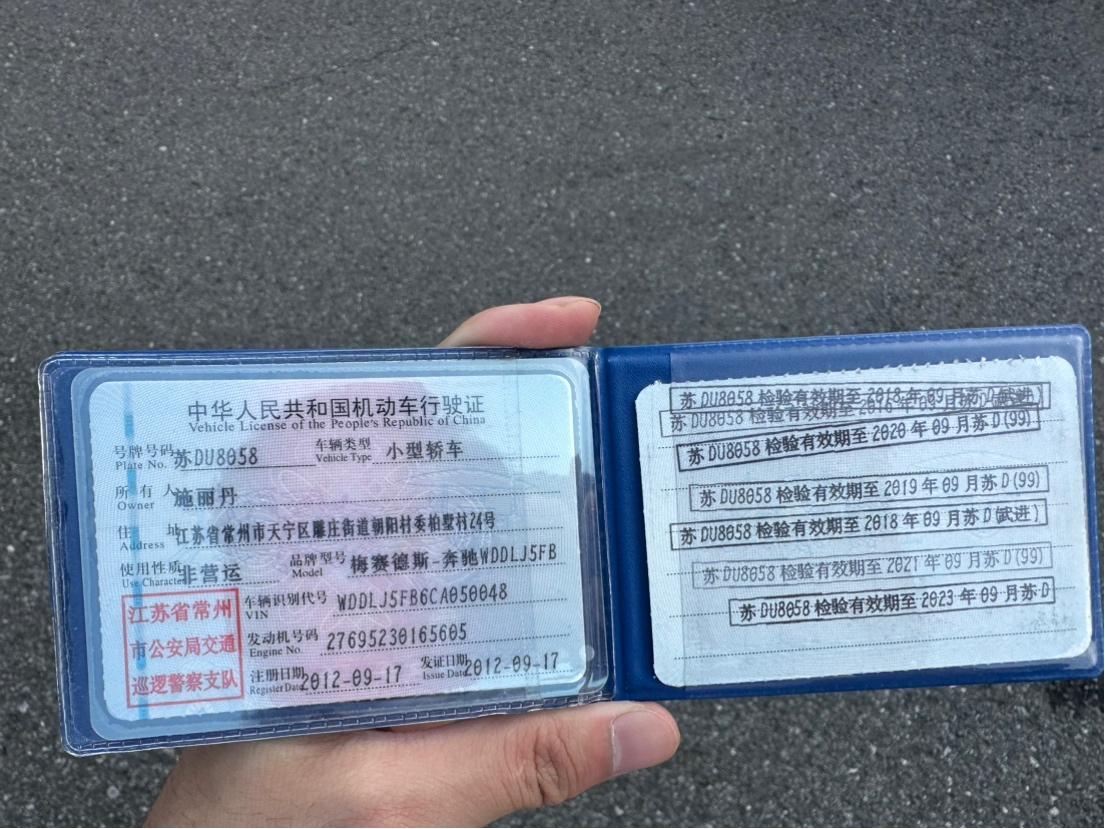 中华人民共和国机动车行驶证
Vehicle License of the People's Republic of China
号牌号码 苏DU8058 车辆类型 小型轿车
Plate No. Vehicle Type
所有人 施丽丹
Owner
住址 江苏省常州市天宁区雕庄街道朝阳村委柏墅村24号
Address
使用性质 非营运 品牌型号 梅赛德斯-奔驰WDDLJ5FB
Use Character Model
江苏省常州
市公安局交通
巡逻警察支队
车辆识别代号 WDDLJ5FB6CA050048
VIN
发动机号码 27695230165605
Engine No.
注册日期 2012-09-17 发证日期 2012-09-17
Register Date Issue Date
苏DU8058 检验有效期至 2018 年 09 月苏D(武进)
苏DU8058 检验有效期至
苏DU8058 检验有效期至 2020 年 09 月苏D(99)
苏DU8058 检验有效期至 2019 年 09 月苏D(99)
苏DU8058 检验有效期至 2018 年 09 月苏D(武进)
苏DU8058 检验有效期至 2021 年 09 月苏D(99)
苏DU8058 检验有效期至 2023 年 09 月苏D